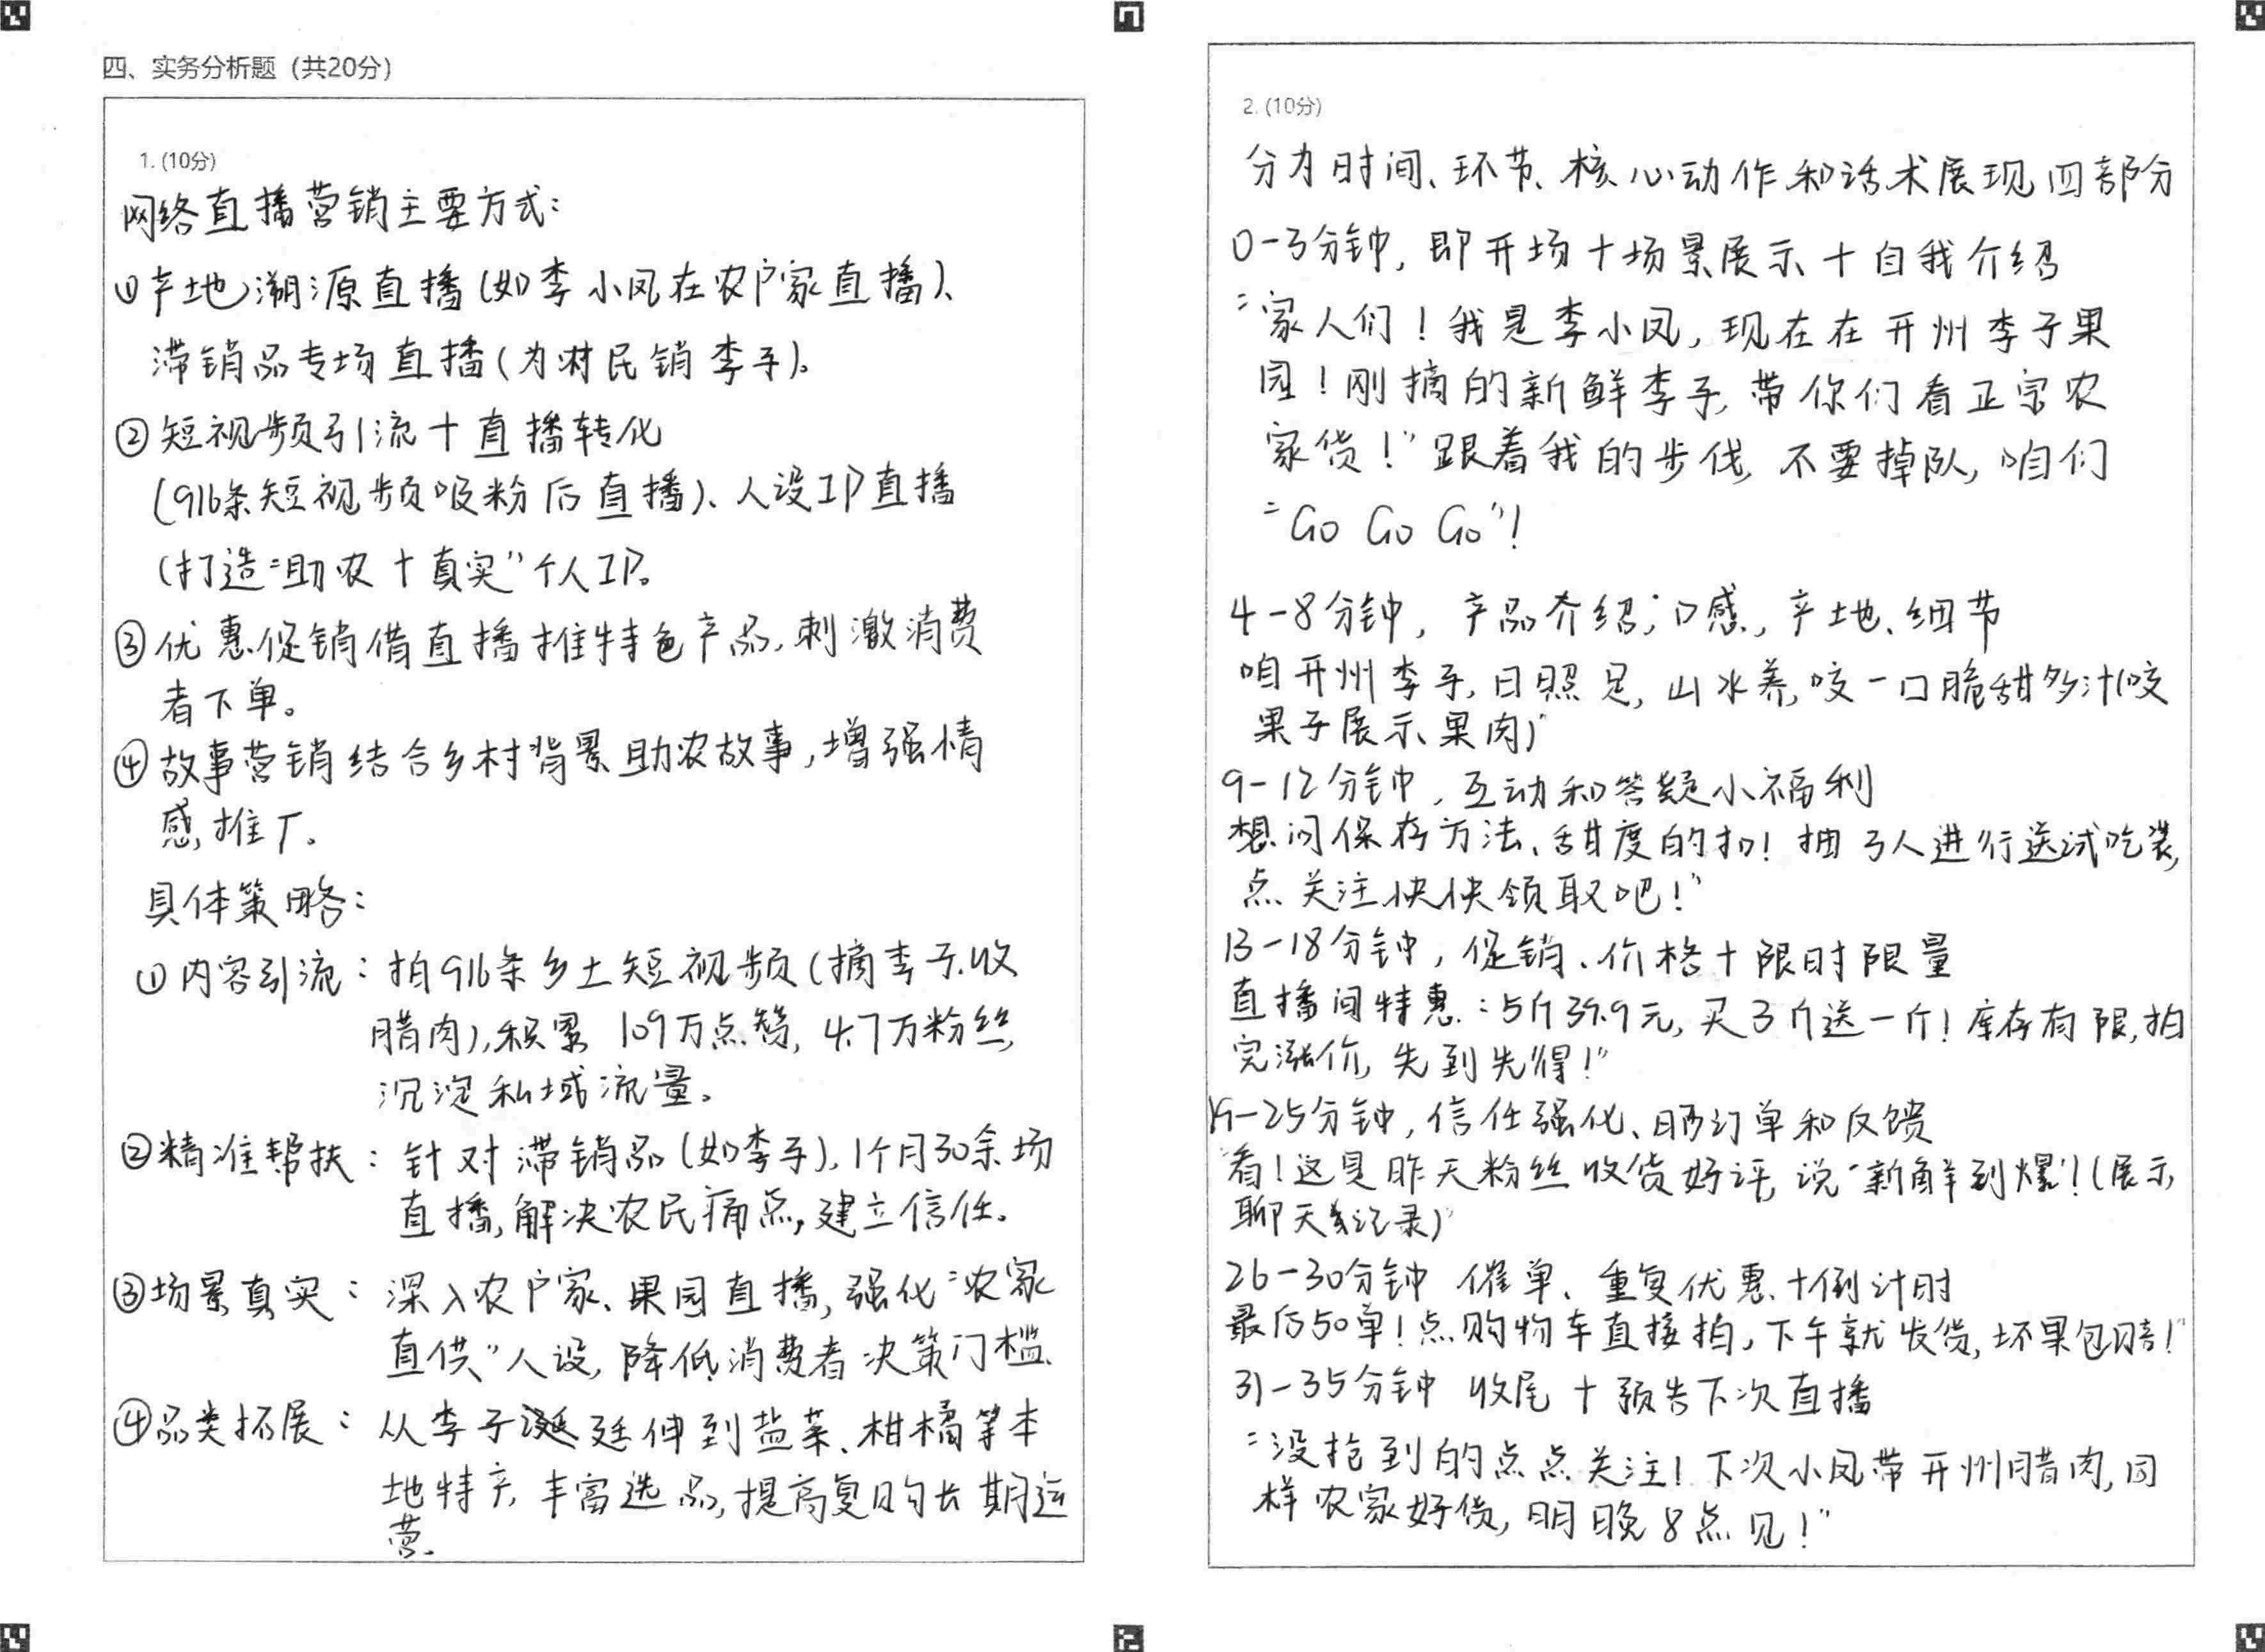 四、实务分析题（共20分）
1. (10分)
网络直播营销主要方式：
①产地溯源直播（如李小凤在农户家直播）、
滞销品专场直播（为村民销李子）。
②短视频引流＋直播转化
（916条短视频吸粉后直播）、人设IP直播
（打造“助农＋真实”个人IP。
③优惠促销借直播推特色产品，刺激消费
者下单。
④故事营销结合乡村背景助农故事，增强情
感，推广。
具体策略：
①内容引流：拍916条乡土短视频（摘李子、收
腊肉），积累109万点赞，4.7万粉丝，
沉淀私域流量。
②精准帮扶：针对滞销品（如李子），1个月30余场
直播，解决农民痛点，建立信任。
③场景真实：深入农户家、果园直播，强化“农家
直供”人设，降低消费者决策门槛、
④品类拓展：从李子延伸到盐菜、柑橘等本
地特产，丰富选品，提高复购长期运
营.
2. (10分)
分为时间、环节、核心动作和话术展现四部分
0-3分钟，即开场＋场景展示＋自我介绍
“家人们！我是李小凤，现在在开州李子果
园！刚摘的新鲜李子，带你们看正宗农
家货！”跟着我的步伐，不要掉队，咱们
“Go Go Go”！
4-8分钟，产品介绍；口感，产地、细节
咱开州李子，日照足，山水养，咬一口脆甜多汁（咬
果子展示果肉）”
9-12分钟，互动和答疑小福利
想问保存方法、甜度的扣！抽3人进行送试吃装，
点关注快快领取吧！”
13-18分钟，促销、价格＋限时限量
直播间特惠：5斤39.9元，买3斤送一斤！库存有限，拍
完涨价，先到先得！”
19-25分钟，信任强化、晒订单和反馈
“看！这是昨天粉丝收货好评，说“新鲜到爆”！（展示
聊天记录）”
26-30分钟 催单、重复优惠＋倒计时
最后50单！点购物车直接拍，下午就发货，坏果包赔！”
31-35分钟 收尾＋预告下次直播
“没抢到的点点关注！下次小凤带开州腊肉，同
样农家好货，明晚8点见！”